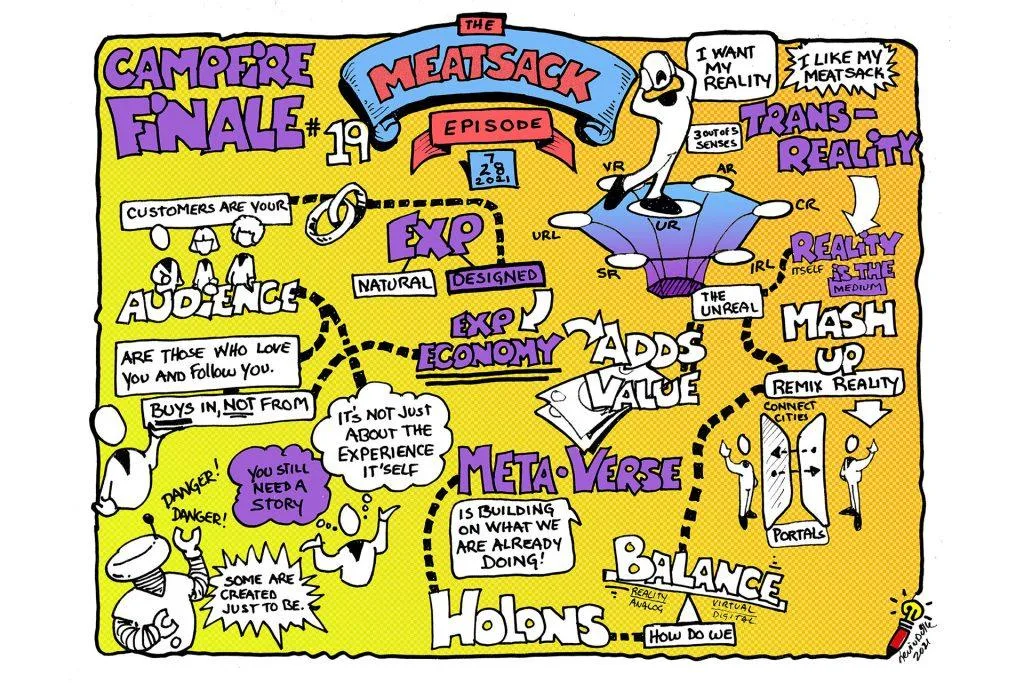 CAMPFIRE
FINALE #19
THE
MEATSACK
EPISODE
7
28
2021
I WANT
MY
REALITY
I LIKE MY
MEATSACK
3 OUT OF 5
SENSES
TRANS-
REALITY
VR
AR
CR
UR
URL
SR
IRL
THE
UNREAL
REALITY
ITSELF IS THE
MEDIUM
MASH
UP
REMIX REALITY
CONNECT
CITIES
PORTALS
CUSTOMERS ARE YOUR
AUDIENCE
ARE THOSE WHO LOVE
YOU AND FOLLOW YOU.
BUYS IN, NOT FROM
EXP
NATURAL
DESIGNED
EXP
ECONOMY
ADDS
VALUE
IT'S NOT JUST
ABOUT THE
EXPERIENCE
IT'SELF
YOU STILL
NEED A
STORY
DANGER!
DANGER!
SOME ARE
CREATED
JUST TO BE.
META-VERSE
IS BUILDING
ON WHAT WE
ARE ALREADY
DOING!
HOLONS
BALANCE
REALITY
ANALOG
VIRTUAL
DIGITAL
HOW DO WE
2021